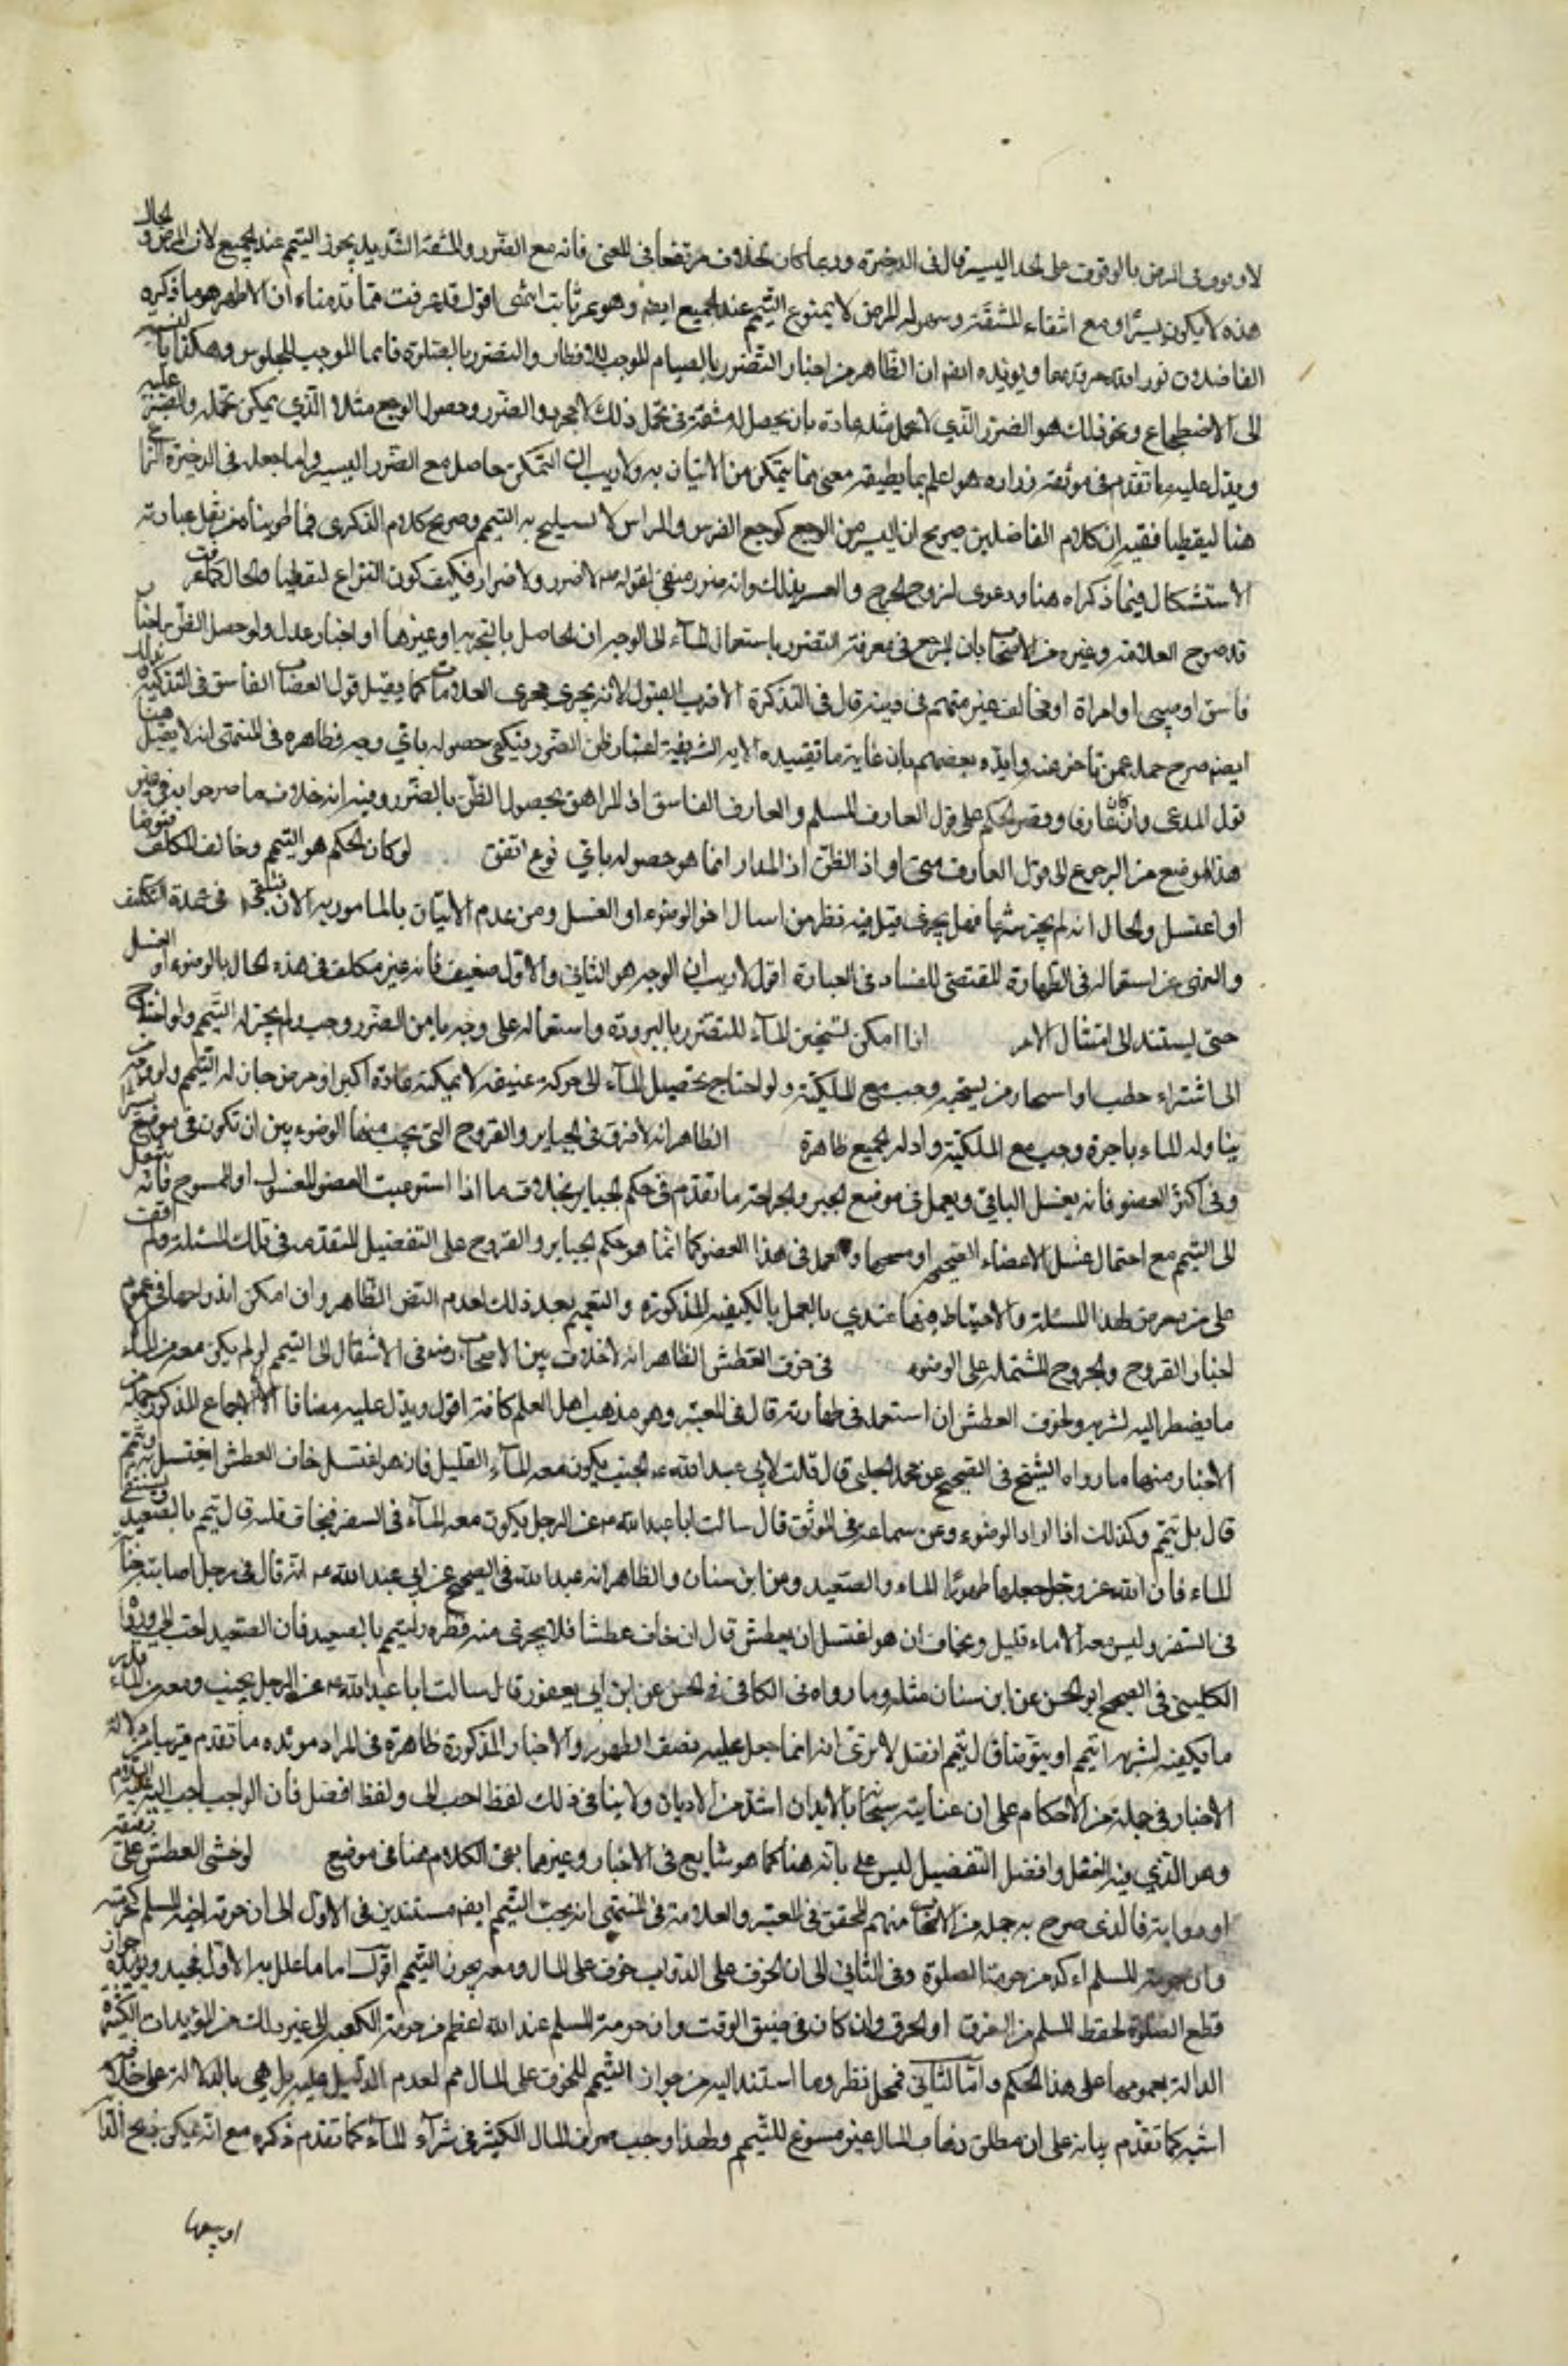 لا ونوى في المرض بالوقوف على الحد اليسير قال في الذخيرة وربما كان الخلاف مرتفعا في المعنى فانه مع الضرر والمشقة الشديد يجوز التيمم عند الجميع لان المرض والحال
هذه لا يكون يسيرا ومع انتفاء المشقة وسهولة المرض لا يسوغ التيمم عند الجميع ايضا وهو غير ثابت انتهى اقول قد عرفت مما قدمناه ان الاظهر هو ما ذكره
الفاضلان نور الله مرقدهما ويؤيده ايضا ان الظاهر من اخبار التضرر بالصيام الموجب للافطار والتضرر بالصلوة قائما الموجب للجلوس وهكذا بالنسبة
الى الاضطجاع ونحو ذلك هو الضرر الذي لا يتحمل مثله عادة بان يحصل له مشقة في تحمل ذلك لا مجرد الضرر وحصول الوجع مثلا الذي يمكن تحمله والصبر عليه
ويدل عليه ما تقدم في موثقة زرارة هو اعلم بما يطيقه بمعنى ما يتمكن من الاتيان به ولا ريب ان التمكن حاصل مع الضرر اليسير واما جعله في الذخيرة النزاع
هنا لفظيا ففيه ان كلام الفاضلين صريح ان اليسير من الوجع كوجع الضرس والراس لا يستبيح به التيمم وصريح كلام الذكرى فيما طويناه من نقل عبارته
الاستشكال فيما ذكراه هنا ودعوى لزوم الحرج والعسر بذلك وانه ضرر منفي لقوله ص لا ضرر ولا ضرار فكيف يكون النزاع لفظيا والحال كما عرفت
قد صرح العلامة وغيره من الاصحاب بان المرجع في معرفة التضرر باستعمال الماء الى الوجدان الحاصل بالتجربة او غيرها او اخبار عدل ولو حصل الظن باخبار
فاسق او صبي او امراة او مخالف غير متهم في دينه قال في التذكرة الاقرب القبول لانه يجري مجرى العلامات كما يقبل قول القصاب الفاسق في التذكية والى
ايضا صرح جملة ممن تاخر عنه وايده بعضهم بان غاية ما تفيده الاية الشريفة اعتبار ظن الضرر فيكفي حصوله باي وجه وظاهره في المنتهى انه لا يقبل هنا
قول المدعي وان كان عارفا وقصر الحكم على قول العارف المسلم والعارف الفاسق اذ المراهق يحصل الظن بالضرر وفيه انه خلاف ما صرحوا به في غير
هذا الموضع من الرجوع الى قول العارف متى افاد الظن اذ المدار انما هو حصوله باي نوع اتفق لو كان الحكم هو التيمم وخالف المكلف فتوضأ
او اغتسل والحال انه لم يجز شرعا فهل يجزي قيل فيه نظر من امتثال امر الوضوء او الغسل ومن عدم الاتيان بالمامور به الان فيبقى في عهدة التكليف
والنهي عن استعماله في الطهارة المقتضي للفساد في العبارة اقول لا ريب ان الوجه هو الثاني والاول ضعيف فانه غير مكلف في هذه الحال بالوضوء او الغسل
حتى يستند الى امتثال الامر اذا امكن تسخين الماء للمتضرر بالبرودة واستعماله على وجه يامن الضرر وجب ولم يجز له التيمم ولو احتاج
الى اشتراء حطب او استيجار من يسخنه وجب مع الملكية ولو احتاج تحصيل الماء الى حركة عنيفة لا يمكنه عادة لكبر او مرض جاز له التيمم ولو وجد من
يناوله الماء باجرة وجب مع الملكية وادلة الجميع ظاهرة الظاهر انه لا فرق في الجباير والقروح التي يجب معها الوضوء بين ان تكون في موضع
وفي اكثر العضو فانه يغسل الباقي ويعمل في موضع الجبر والجراحة ما تقدم في حكم الجباير بخلاف ما اذا استوعبت العضو المغسول او الممسوح فانه ينتقل
الى التيمم مع احتمال غسل الاعضاء الصحيحة او مسحها والعمل في هذا العضو كما انما هو حكم الجباير والقروح على التفصيل المتقدم في تلك المسئلة ولم اقف
على من تعرض لهذا المسئلة والاحتياط فيها عندي بالعمل بالكيفية المذكورة والتيمم بعد ذلك لعدم النص الظاهر وان امكن اندراجها في عموم
اخبار القروح والجروح المشتملة على الوضوء في خوف العطش الظاهر انه لا خلاف بين الاصحاب رضه في الانتقال الى التيمم لو لم يكن معه من الماء
ما يضطر اليه لشربه ولخوف العطش ان استعمله في طهارته قال في المعتبر وهو مذهب اهل العلم كافة اقول ويدل عليه مضافا الى الاجماع المذكور جملة من
الاخبار منها ما رواه الشيخ في الصحيح عن محمد الحلبي قال قلت لابي عبد الله ع الجنب يكون معه الماء القليل فان هو اغتسل خاف العطش ايغتسل به او يتيمم
قال بل يتيمم وكذلك اذا اراد الوضوء وعن سماعة في الموثق قال سالت ابا عبد الله ع عن الرجل يكون معه الماء في السفر فيخاف قلته قال يتيمم بالصعيد ويستبقي
الماء فان الله عز وجل جعلهما طهورا الماء والصعيد وعن ابن سنان والظاهر انه عبد الله في الصحيح عن ابي عبد الله ع انه قال في رجل اصابته جنابة
في السفر وليس معه الا ماء قليل ويخاف ان هو اغتسل ان يعطش قال ان خاف عطشا فلا يهريق منه قطرة وليتيمم بالصعيد فان الصعيد احب الي ورواه
الكليني في الصحيح او الحسن عن ابن سنان مثله وما رواه في الكافي في الحسن عن ابن ابي يعفور قال سالت ابا عبد الله ع عن الرجل يجنب ومعه من الماء قدر
ما يكفيه لشربه ايتيمم او يتوضأ قال يتيمم افضل الا ترى انه انما جعل عليه نصف الطهور والاخبار المذكورة ظاهرة في المراد مؤيده ما تقدم قريبا من دلالة
الاخبار في جملة من الاحكام على ان عنايته سبحانه بالابدان اشد من الاديان ولا ينافي ذلك لفظ احب الي ولفظ افضل فان الواجب احب اليه عليه السلام
وهو الذي فيه الفضل وافعل التفضيل ليس على بابه هنا كما هو شايع في الاخبار وغيرها بقي الكلام هنا في موضع لو خشي العطش على رفيقه
او دوابه فالذي صرح به جملة من الاصحاب منهم المحقق في المعتبر والعلامة في المنتهى انه يجب التيمم ايضا مستندين في الاول الى ان حرمة اخيه المسلم كحرمته
وان حرمة المسلم اكد من حرمة الصلوة وفي الثاني الى ان الخوف على الدواب خوف على المال ومعه يجوز التيمم اقول اما ما علل به الاول فجيد ويؤيده جواز
قطع الصلوة لحفظ المسلم من الغرق او الحرق وان كان في ضيق الوقت وان حرمة المسلم عند الله اعظم من حرمة الكعبة الى غير ذلك من المؤيدات الكثيرة
الدالة بعمومها على هذا الحكم واما الثاني فمحل نظر وما استند اليه من جواز التيمم للخوف على المال مم لعدم الدليل عليه بل هي بالدلالة على خلافه
اشبه كما تقدم بيانه على ان مطلق ذهاب المال غير مسوغ للتيمم ولهذا وجب صرف المال الكثير في شراء الماء كما تقدم ذكره مع انه يمكن ذبح الدابة
او بيعها